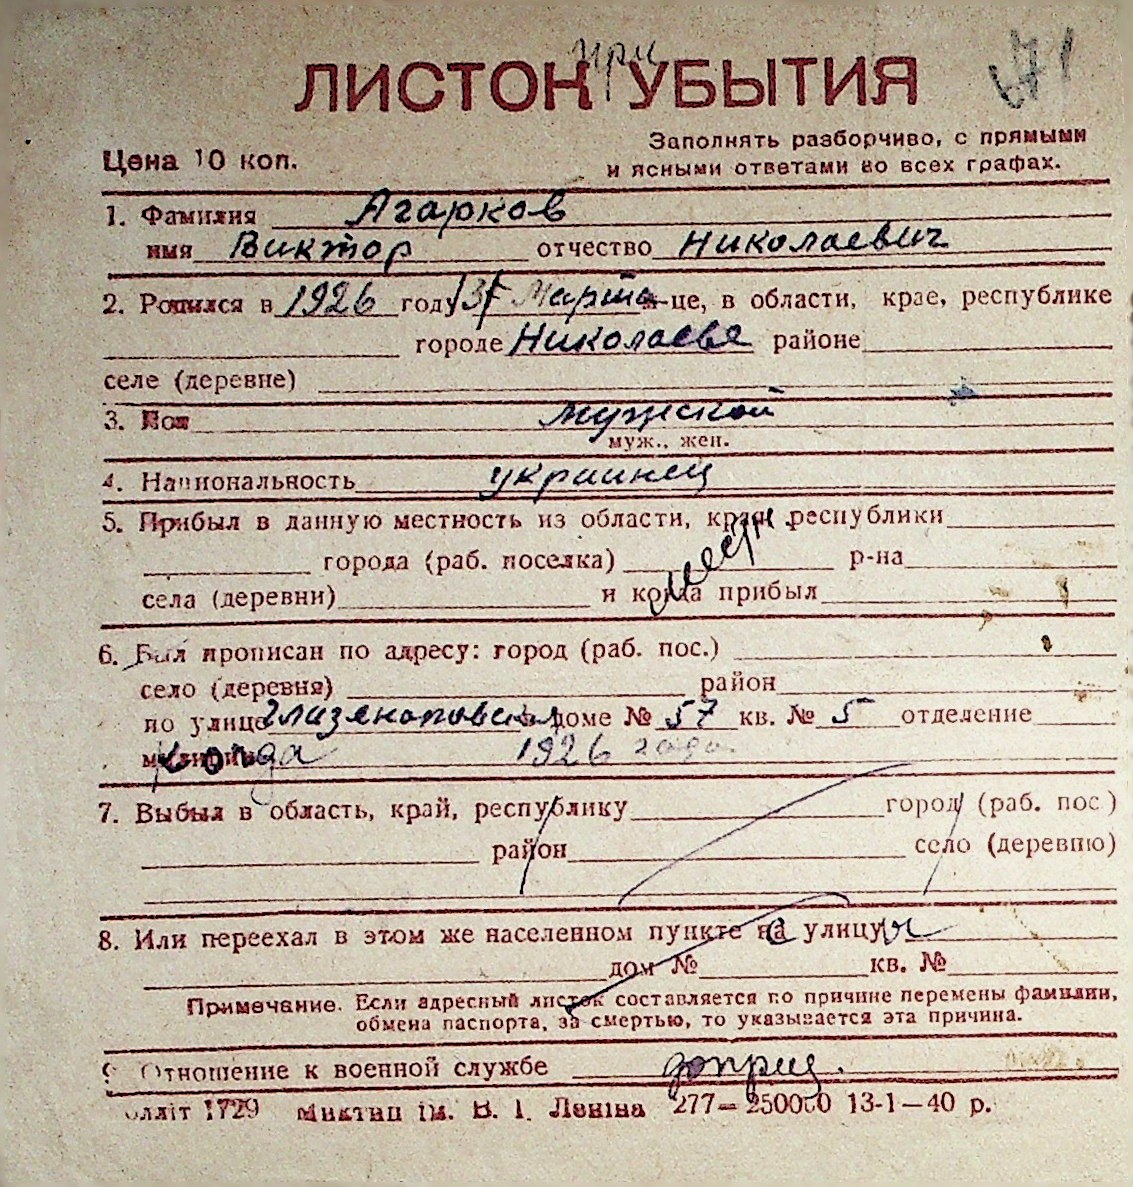 при
ЛИСТОК УБЫТИЯ
671
Цена 10 коп.
Заполнять разборчиво, с прямыми
и ясными ответами во всех графах.
1. Фамилия Агарков
имя Виктор отчество Николаевич
2. Родился в 1926 году 13/ Марта м-це, в области, крае, республике
городе Николаеве районе
селе (деревне)
3. Пол мужской
муж., жен.
4. Национальность украинец
5. Прибыл в данную местность из области, края, республики
города (раб. поселка) местн. р-на
села (деревни) и когда прибыл
6. Был прописан по адресу: город (раб. пос.)
село (деревня) район
по улице Глазенаповская в доме № 57 кв. № 5 отделение
милиции когда 1926 года
7. Выбыл в область, край, республику город (раб. пос.)
район село (деревню)
8. Или переехал в этом же населенном пункте на с улицу ы
дом № кв. №
Примечание. Если адресный листок составляется по причине перемены фамилии,
обмена паспорта, за смертью, то указывается эта причина.
9. Отношение к военной службе доприз.
лліт 1729 ім. В. І. Леніна 277—250000 13-1—40 р.